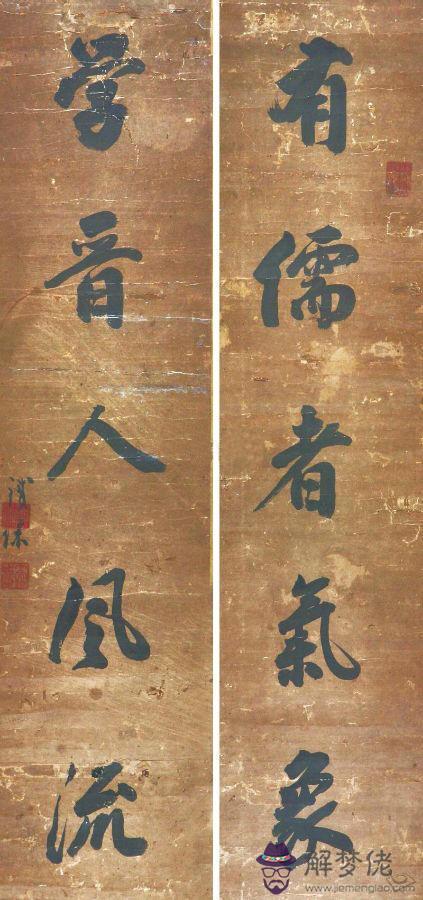 有儒者氣象
学晋人風流
鐵保
解梦佬
www.jiemenglao.com